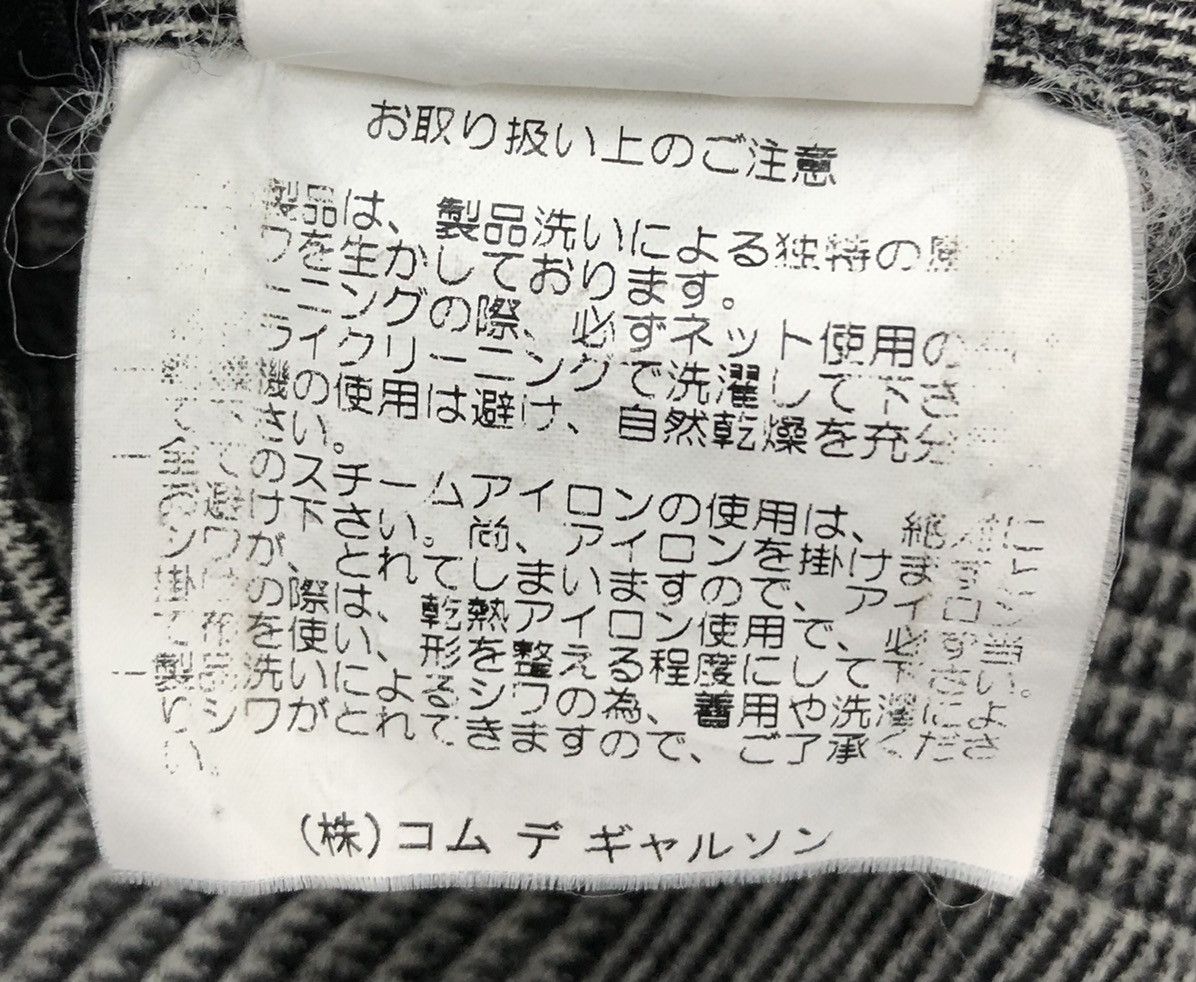 お取り扱い上のご注意
製品は、製品洗いによる独特の
ワを生かしております。
ーニングの際、必ずネット使用の
ライクリーニングで洗濯して下さ
機の使用は避け、自然乾燥を充分
さい。
のスチームアイロンの使用は、絶対に
避け下さい。尚、アイロンを掛けますと
シワが、とれてしまいますので、アイロン
掛けの際は、乾熱アイロン使用で、必ず当
布を使い、形を整える程度にして下さい。
製品洗いによるシワの為、着用や洗濯によ
りシワがとれてきますので、ご了承くださ
い。
(株)コム デ ギャルソン